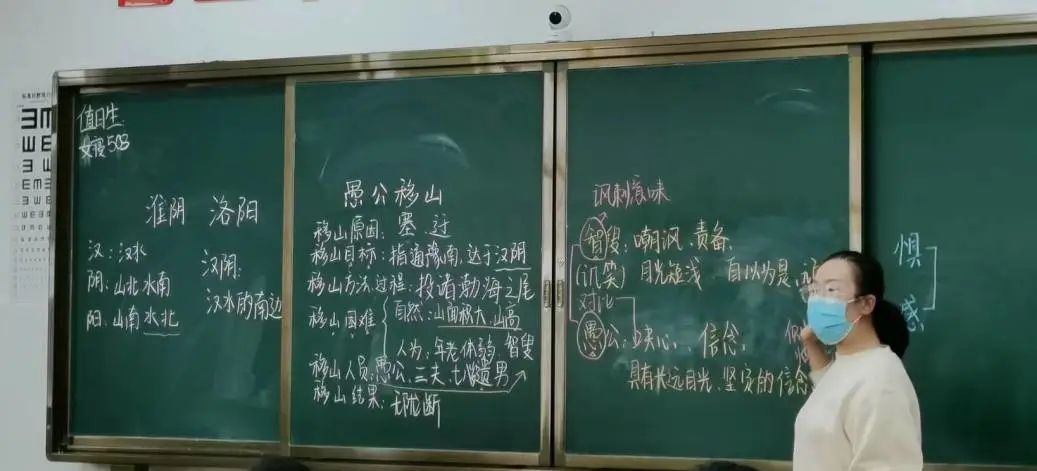 值日生:
女寝503
淮阴 洛阳
汉:汉水
阴:山北水南
阳:山南水北
汉阴:
汉水的南边
愚公移山
移山原因:塞、迂
移山目标:指通豫南,达于汉阴
移山方法过程:投诸渤海之尾
移山困难
自然:山面积大、山高
人为:年老体弱、智叟
移山人员:愚公、三夫、七龀遗男
移山结果:无陇断
讽刺意味
智叟:嘲讽、责备、
(讥笑) 目光短浅 自以为是、
对比
愚公:决心、信念、
具有长远目光、坚定的信念
惧
感